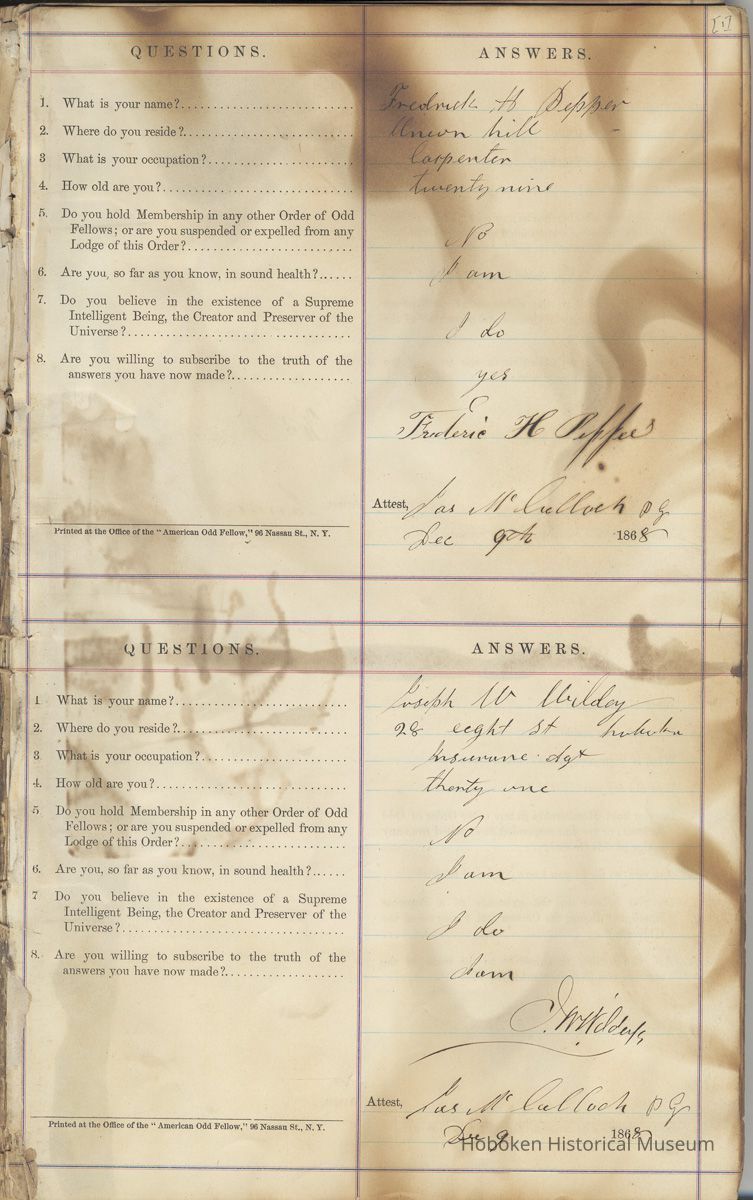 [1]
QUESTIONS. ANSWERS.
1. What is your name? Fredrick H Pepper
2. Where do you reside? Union hill
3 What is your occupation? Carpenter
4. How old are you? twenty nine
5. Do you hold Membership in any other Order of Odd
Fellows; or are you suspended or expelled from any
Lodge of this Order? No
6. Are you, so far as you know, in sound health? I am
7. Do you believe in the existence of a Supreme
Intelligent Being, the Creator and Preserver of the
Universe? I do
8. Are you willing to subscribe to the truth of the
answers you have now made? yes
Frederic H Pepper
Attest, Jas McCulloch P G
Dec 9th 1868
Printed at the Office of the "American Odd Fellow," 96 Nassau St., N. Y.
QUESTIONS. ANSWERS.
1 What is your name? Joseph W Wildey
2. Where do you reside? 28 eeght st
3 What is your occupation? Insurane Agt
4. How old are you? thenty one
5 Do you hold Membership in any other Order of Odd
Fellows; or are you suspended or expelled from any
Lodge of this Order? No
6. Are you, so far as you know, in sound health? I am
7 Do you believe in the existence of a Supreme
Intelligent Being, the Creator and Preserver of the
Universe? I do
8. Are you willing to subscribe to the truth of the
answers you have now made? I am
J. W. Wildey
Attest, Jas McCulloch P G
Dec 9 1868
Printed at the Office of the "American Odd Fellow," 96 Nassau St., N. Y.
Hoboken Historical Museum